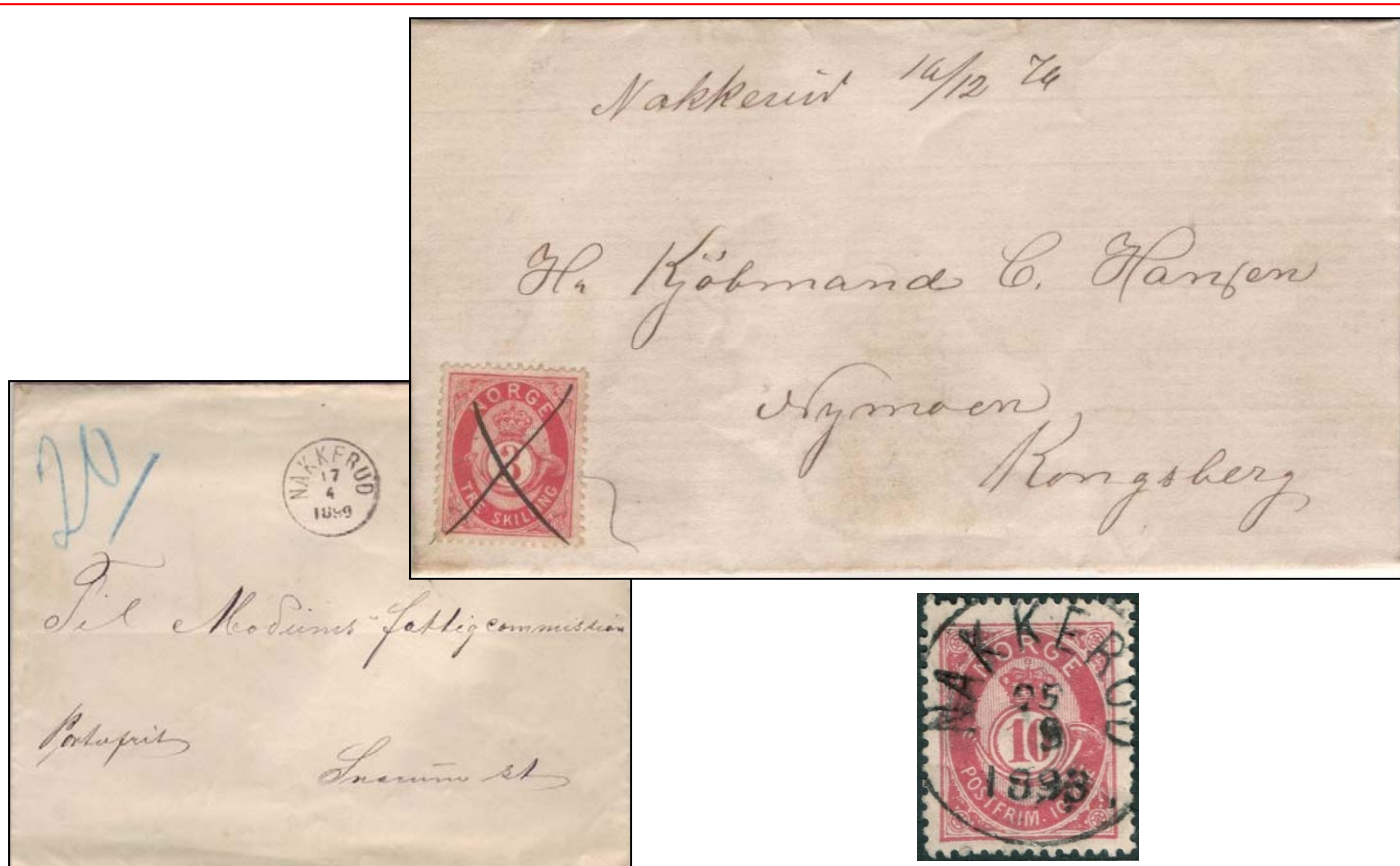 Nakkerud 16/12 76
Hr Kjöbmand C. Hansen
Nymoen
Kongsberg
NORGE
3
TRE SKILLING
20/
NAKKERUD
17
4
1899
Til Modums fattigcommission
Portofrit
Snarum st
NAKKERUD
25
8
NORGE
10
POSTFRIM.